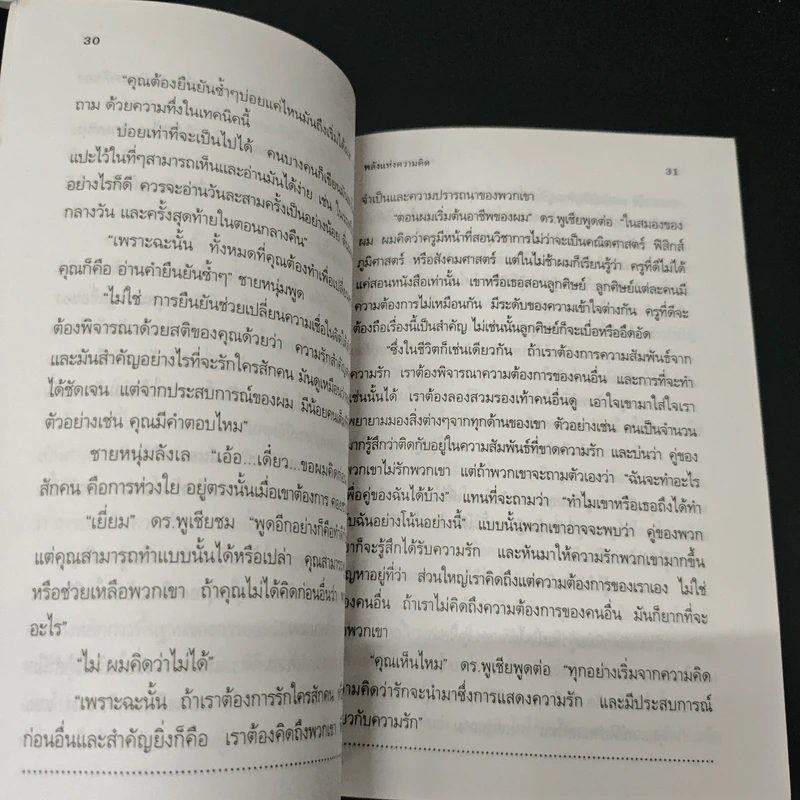 30
“คุณต้องยืนยันซ้ำๆบ่อยแค่ไหนมันถึงเริ่มได้
ถาม ด้วยความทึ่งในเทคนิคนี้
บ่อยเท่าที่จะเป็นไปได้ คนบางคนก็เขียน
แปะไว้ในที่ๆสามารถเห็นและอ่านมันได้ง่าย เช่น
อย่างไรก็ดี ควรจะอ่านวันละสามครั้งเป็นอย่างน้อย
กลางวัน และครั้งสุดท้ายในตอนกลางคืน”
“เพราะฉะนั้น ทั้งหมดที่คุณต้องทำเพื่อเปลี่ยน
คุณก็คือ อ่านคำยืนยันซ้ำๆ” ชายหนุ่มพูด
“ไม่ใช่ การยืนยันช่วยเปลี่ยนความเชื่อในจิตใต้
ต้องพิจารณาด้วยสติของคุณด้วยว่า ความรักสำคัญ
และมันสำคัญอย่างไรที่จะรักใครสักคน มันดูเหมือน
ได้ชัดเจน แต่จากประสบการณ์ของผม มีน้อยคน
ตัวอย่างเช่น คุณมีคำตอบไหม”
ชายหนุ่มลังเล “เอ้อ...เดี๋ยว...ขอผมคิดก่อน
สักคน คือการห่วงใย อยู่ตรงนั้นเมื่อเขาต้องการ
“เยี่ยม” ดร.พูเชียชม “พูดอีกอย่างก็คือ
แต่คุณสามารถทำแบบนั้นได้หรือเปล่า คุณสามารถ
หรือช่วยเหลือพวกเขา ถ้าคุณไม่ได้คิดก่อนอื่นว่า
อะไร”
“ไม่ ผมคิดว่าไม่ได้”
“เพราะฉะนั้น ถ้าเราต้องการรักใครสักคน
ก่อนอื่นและสำคัญยิ่งก็คือ เราต้องคิดถึงพวกเขา
พลังแห่งความคิด
31
จำเป็นและความปรารถนาของพวกเขา
“ตอนผมเริ่มต้นอาชีพของผม” ดร.พูเชียพูดต่อ “ในสมองของ
ผม ผมคิดว่าครูมีหน้าที่สอนวิชาการไม่ว่าจะเป็นคณิตศาสตร์ ฟิสิกส์
ภูมิศาสตร์ หรือสังคมศาสตร์ แต่ในไม่ช้าผมก็เรียนรู้ว่า ครูที่ดีไม่ได้
แค่สอนหนังสือเท่านั้น เขาหรือเธอสอนลูกศิษย์ ลูกศิษย์แต่ละคนมี
ความต้องการไม่เหมือนกัน มีระดับของความเข้าใจต่างกัน ครูที่ดีจะ
ต้องถือเรื่องนี้เป็นสำคัญ ไม่เช่นนั้นลูกศิษย์ก็จะเบื่อหรืออึดอัด
“ซึ่งในชีวิตก็เช่นเดียวกัน ถ้าเราต้องการความสัมพันธ์จาก
ความรัก เราต้องพิจารณาความต้องการของคนอื่น และการที่จะทำ
เช่นนั้นได้ เราต้องลองสวมรองเท้าคนอื่นดู เอาใจเขามาใส่ใจเรา
พยายามมองสิ่งต่างๆจากทุกด้านของเขา ตัวอย่างเช่น คนเป็นจำนวน
มากรู้สึกว่าติดกับอยู่ในความสัมพันธ์ที่ขาดความรัก และบ่นว่า คู่ของ
พวกเขาไม่รักพวกเขา แต่ถ้าพวกเขาจะถามตัวเองว่า “ฉันจะทำอะไร
เพื่อคู่ของฉันได้บ้าง” แทนที่จะถามว่า “ทำไมเขาหรือเธอถึงได้ทำ
กับฉันอย่างโน้นอย่างนี้” แบบนั้นพวกเขาอาจจะพบว่า คู่ของพวก
เขาก็จะรู้สึกได้รับความรัก และหันมาให้ความรักพวกเขามากขึ้น
ปัญหาอยู่ที่ว่า ส่วนใหญ่เราคิดถึงแต่ความต้องการของเราเอง ไม่ใช่
ของคนอื่น ถ้าเราไม่คิดถึงความต้องการของคนอื่น มันก็ยากที่จะ
พวกเขา
“คุณเห็นไหม” ดร.พูเชียพูดต่อ “ทุกอย่างเริ่มจากความคิด
ความคิดว่ารักจะนำมาซึ่งการแสดงความรัก และมีประสบการณ์
เกี่ยวกับความรัก”